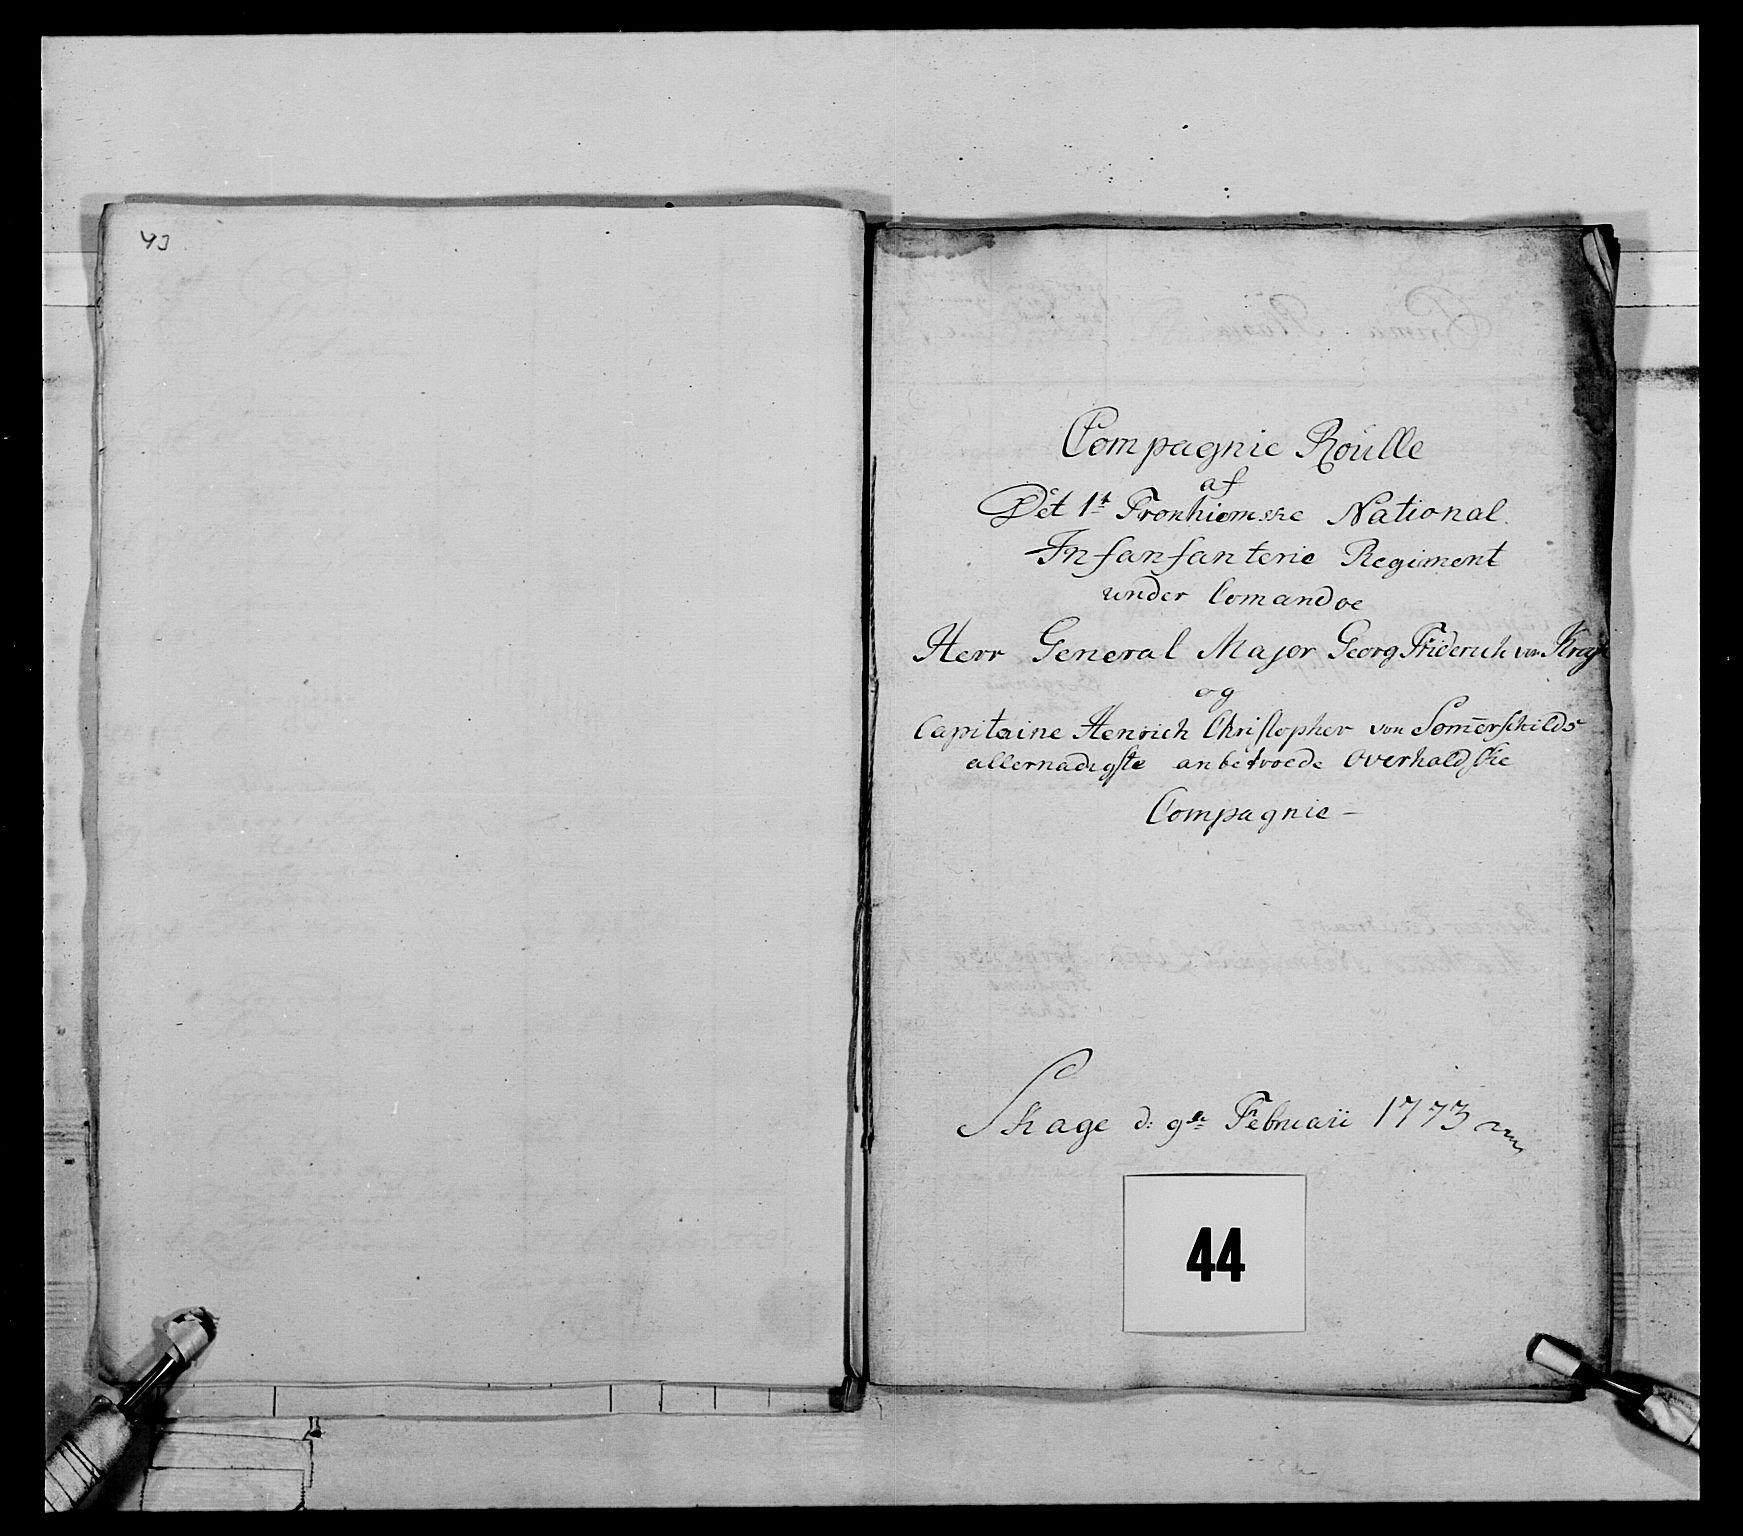 43
Compagnie Roúlle
af
Det 1t Tronhiemske National
Infanfanterie Regiment
under Comandoe
Herr General Major Georg Friderich von Krag
og
Capitaine Henrich Christopher von Som̄erschilds
allernadigste anbetroede Overhaldske
Compagnie -
Skage d: 9de Februarii 1773
44